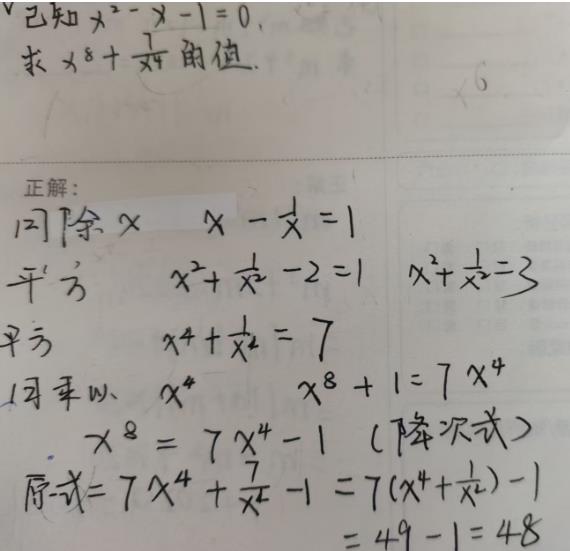 已知 x² - x - 1 = 0.
求 x⁸ + 7/x⁴ 的值.
正解:
同除 x  x - 1/x = 1
平方  x² + 1/x² - 2 = 1  x² + 1/x² = 3
平方  x⁴ + 1/x⁴ = 7
同乘以 x⁴  x⁸ + 1 = 7x⁴
x⁸ = 7x⁴ - 1 (降次式)
原式 = 7x⁴ + 7/x⁴ - 1 = 7(x⁴ + 1/x⁴) - 1
= 49 - 1 = 48